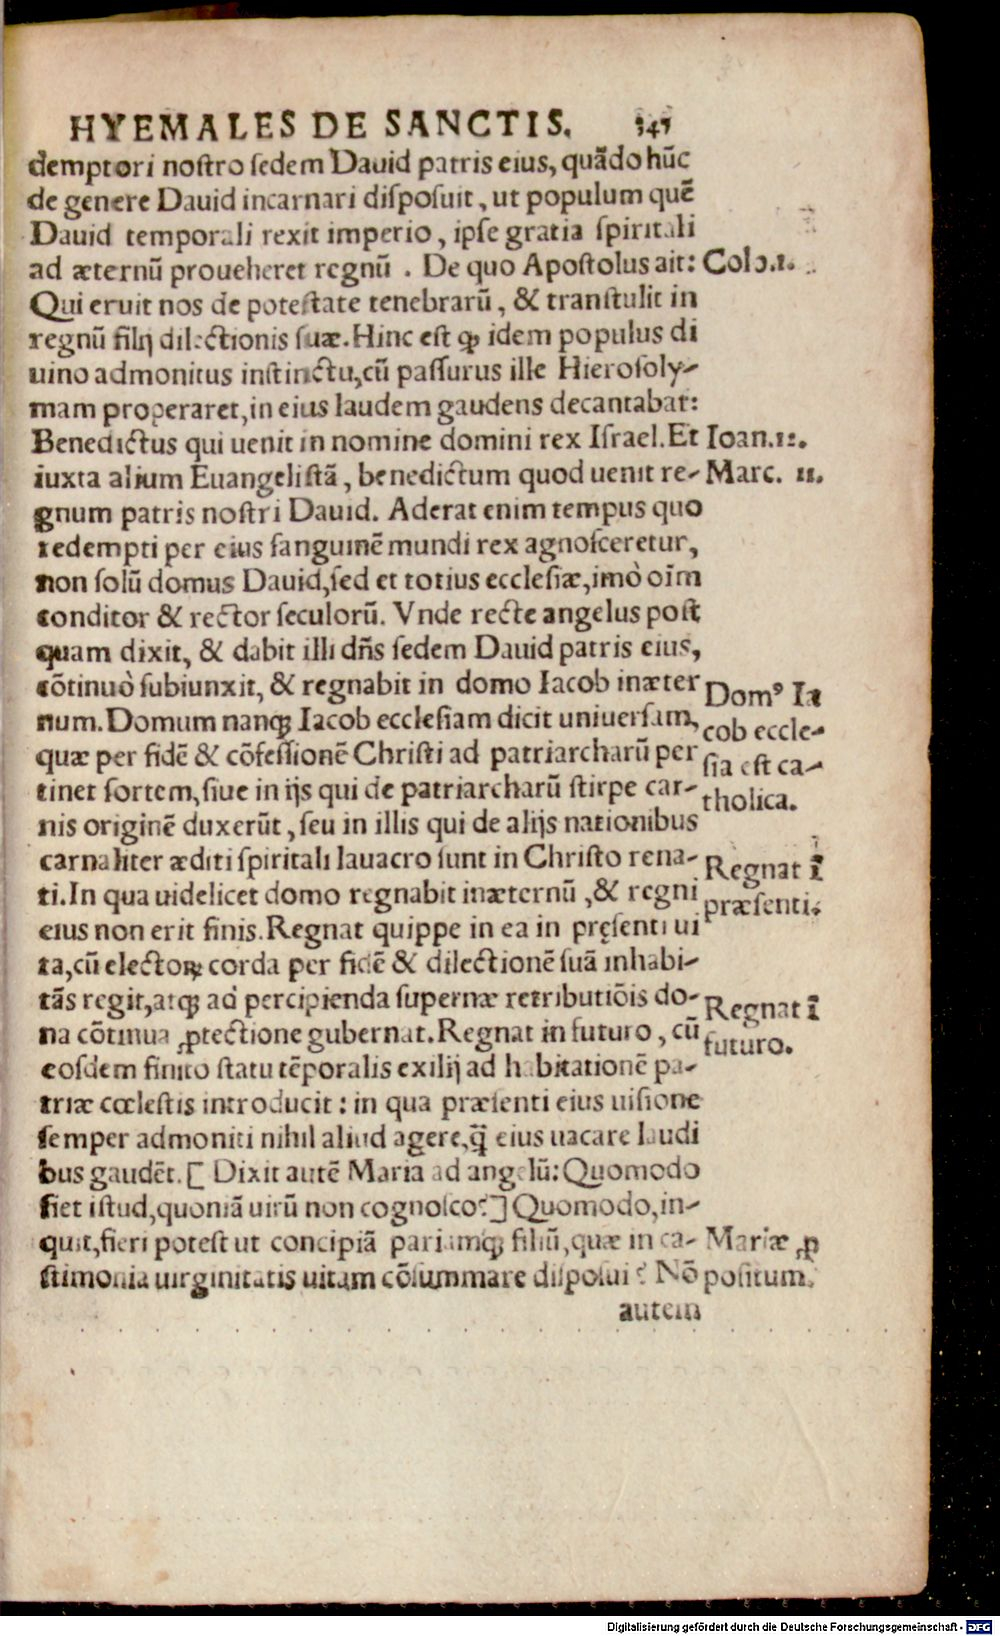 HYEMALES DE SANCTIS. 141
demptori nostro sedem Dauid patris eius, quãdo hũc
de genere Dauid incarnari disposuit, ut populum quẽ
Dauid temporali rexit imperio, ipse gratia spiritali
ad æternũ proueheret regnũ. De quo Apostolus ait: Colo.1.
Qui eruit nos de potestate tenebrarũ, & transtulit in
regnũ filij dilectionis suæ. Hinc est ꝙ idem populus di
uino admonitus instinctu, cũ passurus ille Hierosoly-
mam properaret, in eius laudem gaudens decantabat:
Benedictus qui uenit in nomine domini rex Israel. Et Ioan.12.
iuxta alium Euangelistã, benedictum quod uenit re- Marc. 11.
gnum patris nostri Dauid. Aderat enim tempus quo
redempti per eius sanguinẽ mundi rex agnosceretur,
non solũ domus Dauid, sed et totius ecclesiæ, imò oĩm
conditor & rector seculorũ. Vnde recte angelus post
quam dixit, & dabit illi dñs sedem Dauid patris eius,
cõtinuò subiunxit, & regnabit in domo Iacob inæter
num. Domum nanq; Iacob ecclesiam dicit uniuersam,
quæ per fidẽ & cõfessionẽ Christi ad patriarcharũ per
tinet sortem, siue in ijs qui de patriarcharũ stirpe car-
nis originẽ duxerũt, seu in illis qui de alijs nationibus
carnaliter æditi spiritali lauacro sunt in Christo rena-
ti. In qua uidelicet domo regnabit inæternũ, & regni
eius non erit finis. Regnat quippe in ea in pręsenti ui
ta, cũ electoꝝ corda per fidẽ & dilectionẽ suã inhabi-
tãs regit, atq; ad percipienda supernæ retributiõis do-
na cõtinua ꝓtectione gubernat. Regnat in futuro, cũ
eosdem finito statu tẽporalis exilij ad habitationẽ pa-
triæ cœlestis introducit: in qua præsenti eius uisione
semper admoniti nihil aliud agere, q̃ eius uacare laudi
bus gaudẽt. [ Dixit autẽ Maria ad angelũ: Quomodo
fiet istud, quoniã uirũ non cognosco? ] Quomodo, in-
quit, fieri potest ut concipiã pariamq; filiũ, quæ in ca-
stimonia uirginitatis uitam cõsummare disposui? Nõ
autem
Domꝰ Ia
cob eccle-
sia est ca-
tholica.
Regnat ĩ
præsenti.
Regnat ĩ
futuro.
Mariæ ꝓ
positum.
Digitalisierung gefördert durch die Deutsche Forschungsgemeinschaft - DFG